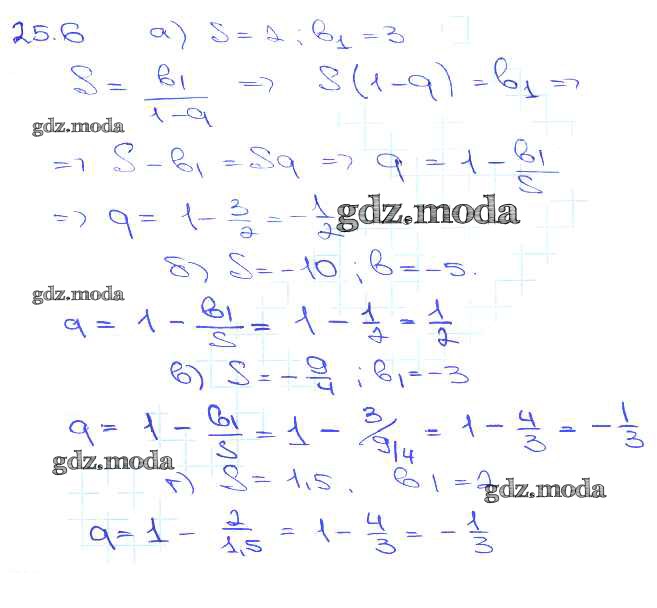 25.6 а) S = 2 ; b₁ = 3
S = b₁/(1-q) => S(1-q) = b₁ =>
gdz.moda
=> S - b₁ = Sq => q = 1 - b₁/S
=> q = 1 - 3/2 = -1/2 gdz.moda
б) S = -10 ; b = -5.
gdz.moda
q = 1 - b₁/S = 1 - 1/2 = 1/2
в) S = -9/4 ; b₁ = -3
q = 1 - b₁/S = 1 - 3/9/4 = 1 - 4/3 = -1/3
gdz.moda
г) S = 1,5. b₁ = 2
gdz.moda
q = 1 - 2/1,5 = 1 - 4/3 = -1/3